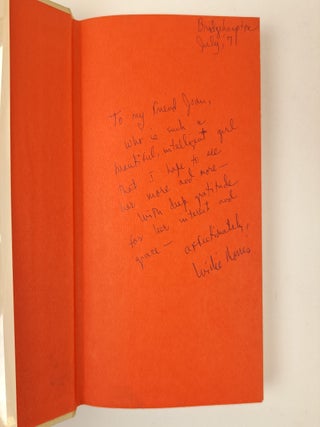 Bridgehampton
July, 71
To my friend Joan,
who is such a
beautiful, intelligent girl
that I hope to see
her more and more—
with deep gratitude
for her interest and
grace—
affectionately,
Willie Morris